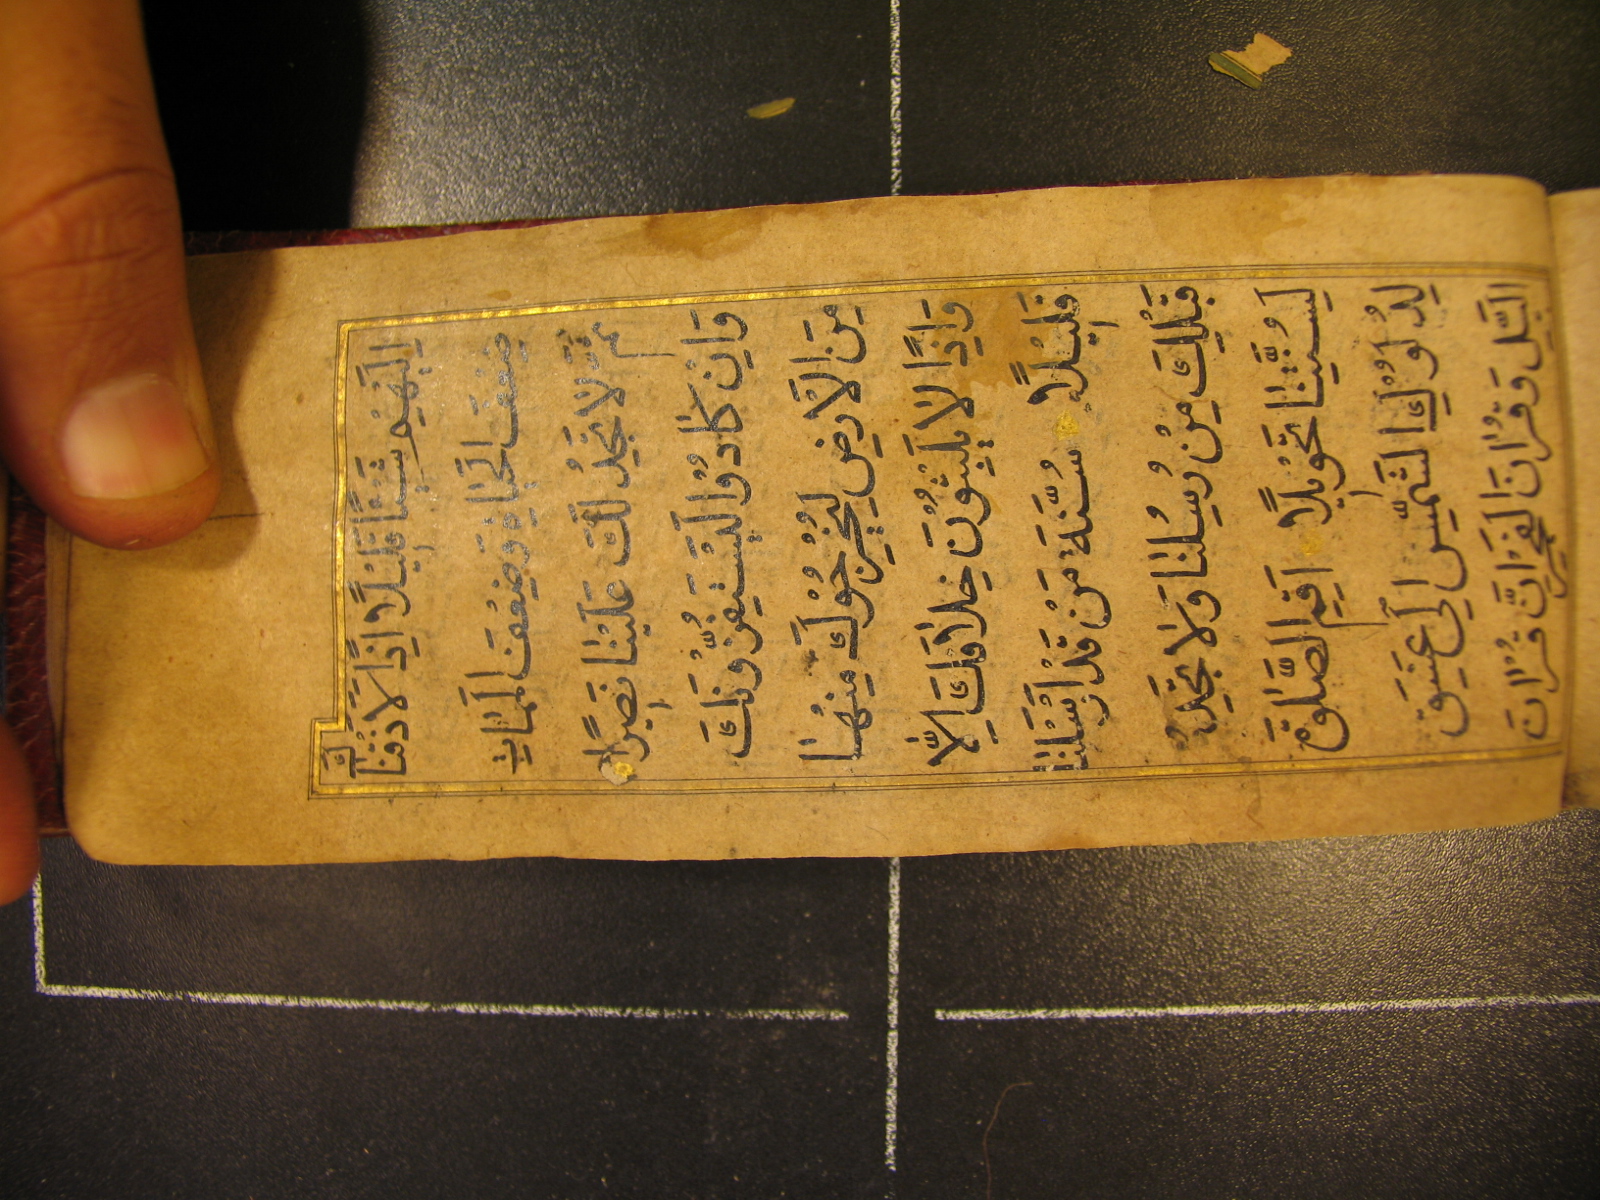 اِلَيْهِمْ شَيْئًا قَلِيْلًا اِذًا لَاَذَقْنَا
كَ
ضِعْفَ الْحَيٰوةِ وَضِعْفَ الْمَمَاتِ
ثُمَّ لَا تَجِدُ لَكَ عَلَيْنَا نَصِيْرًا
وَاِنْ كَادُوْا لَيَسْتَفِزُّوْنَكَ
مِنَ الْاَرْضِ لِيُخْرِجُوْكَ مِنْهَا
وَاِذًا لَا يَلْبَثُوْنَ خِلَافَكَ اِلَّا
قَلِيْلًا سُنَّةَ مَنْ قَدْ اَرْسَلْنَا
قَبْلَكَ مِنْ رُسُلِنَا وَلَا تَجِدُ
لِسُنَّتِنَا تَحْوِيْلًا اَقِمِ الصَّلٰوةَ
لِدُلُوْكِ الشَّمْسِ اِلٰى غَسَقِ
الَّيْلِ وَقُرْاٰنَ الْفَجْرِ اِنَّ قُرْاٰنَ